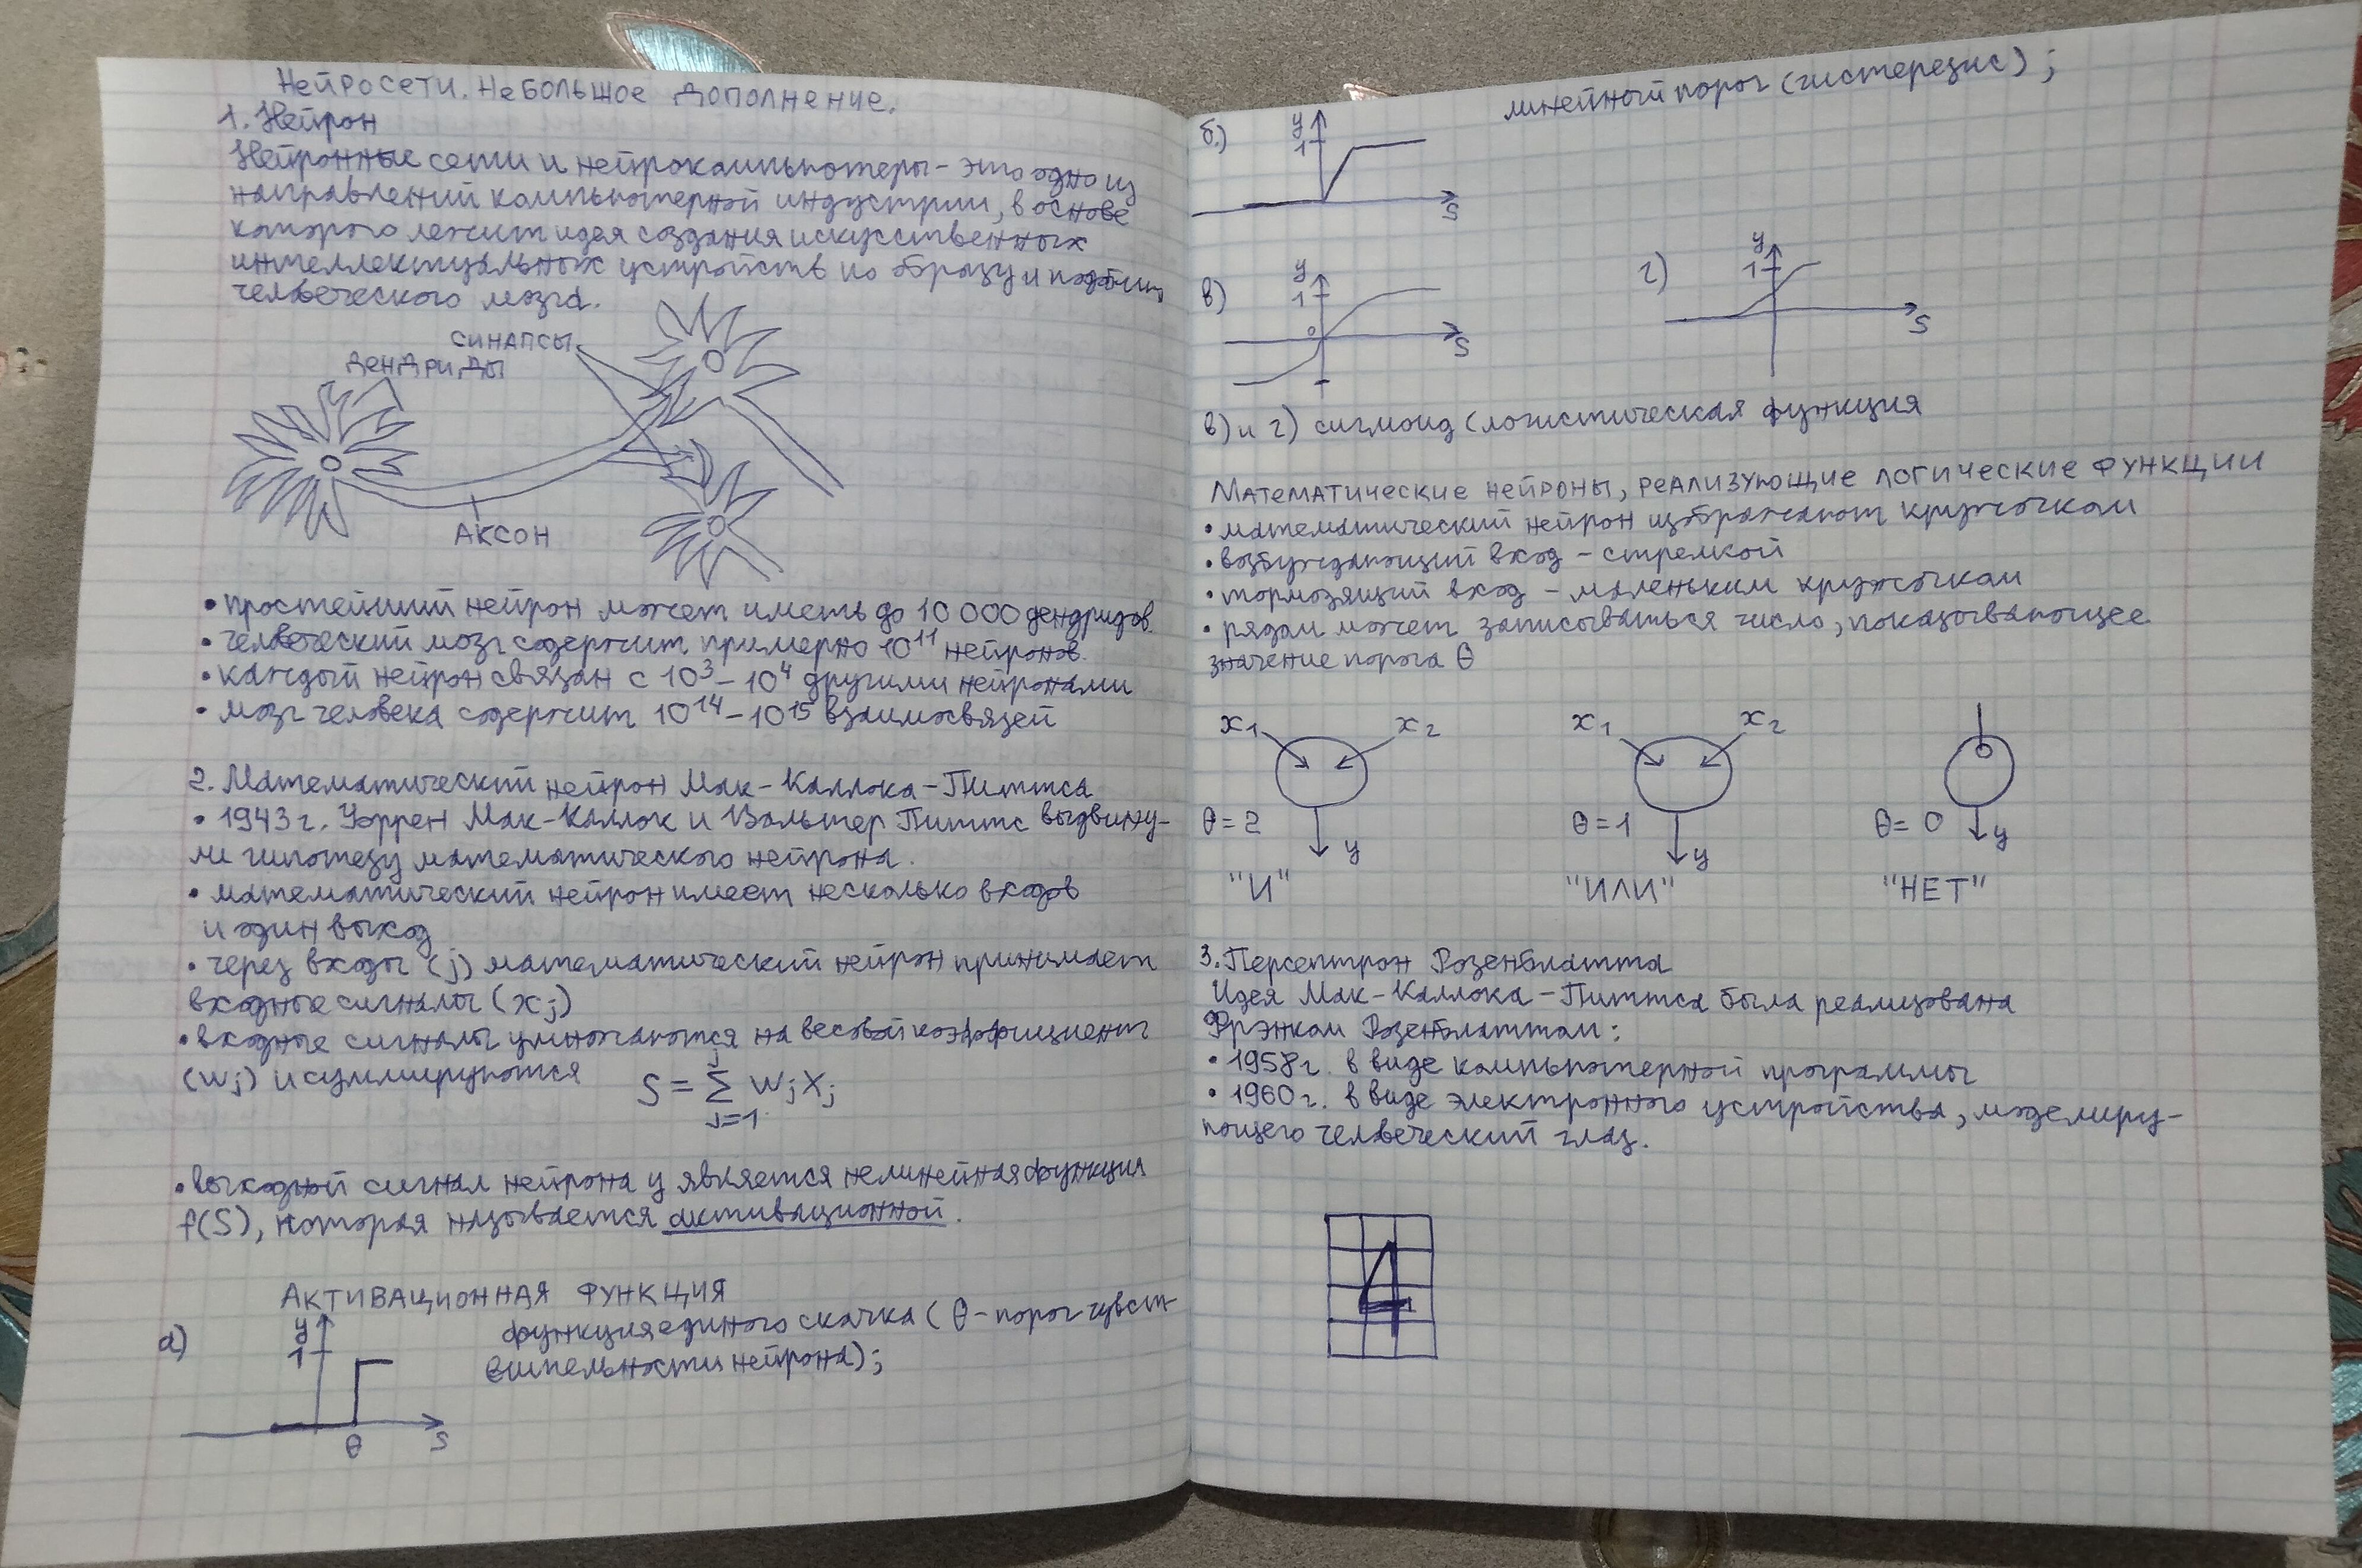 НЕЙРОСЕТИ. НЕБОЛЬШОЕ ДОПОЛНЕНИЕ.
1. Нейрон
Нейронные сети и нейрокомпьютеры - это одно из
направлений компьютерной индустрии, в основе
которого лежит идея создания искусственных
интеллектуальных устройств по образу и подобию
человеческого мозга.
СИНАПСЫ
ДЕНДРИДЫ
АКСОН
• простейший нейрон может иметь до 10 000 дендридов.
• человеческий мозг содержит примерно 10¹¹ нейронов.
• каждый нейрон связан с 10³ - 10⁴ другими нейронами
• мозг человека содержит 10¹⁴ - 10¹⁵ взаимосвязей
2. Математический нейрон Мак-Каллока-Питтса
• 1943 г. Уоррен Мак-Каллок и Вальтер Питтс выдвину-
ли гипотезу математического нейрона.
• математический нейрон имеет несколько входов
и один выход
• через входы (j) математический нейрон принимает
входные сигналы (xj)
• входные сигналы умножаются на весовой коэффициент
(wj) и суммируются S = Σ wjxj
j
j=1
• выходной сигнал нейрона y является нелинейная функция
f(S), которая называется активационной.
АКТИВАЦИОННАЯ ФУНКЦИЯ
а) y 1 θ S
функция единого скачка (θ - порог чувст-
вительности нейрона);
б.) y 1 S
линейный порог (гистерезис);
в) y 1 0 S
г) y 1 S
в) и г) сигмоид (логистическая функция
МАТЕМАТИЧЕСКИЕ НЕЙРОНЫ, РЕАЛИЗУЮЩИЕ ЛОГИЧЕСКИЕ ФУНКЦИИ
• математический нейрон изображают кружочком
• возбуждающий вход - стрелкой
• тормозящий вход - маленьким кружочком
• рядом может записываться число, показывающее
значение порога θ
x₁ x₂ x₁ x₂
θ=2 y θ=1 y θ= 0 y
"И" "ИЛИ" "НЕТ"
3. Персептрон Розенблатта
Идея Мак-Каллока-Питтса была реализована
Фрэнком Розенблаттом:
• 1958 г. в виде компьютерной программы
• 1960 г. в виде электронного устройства, моделиру-
ющего человеческий глаз.
4